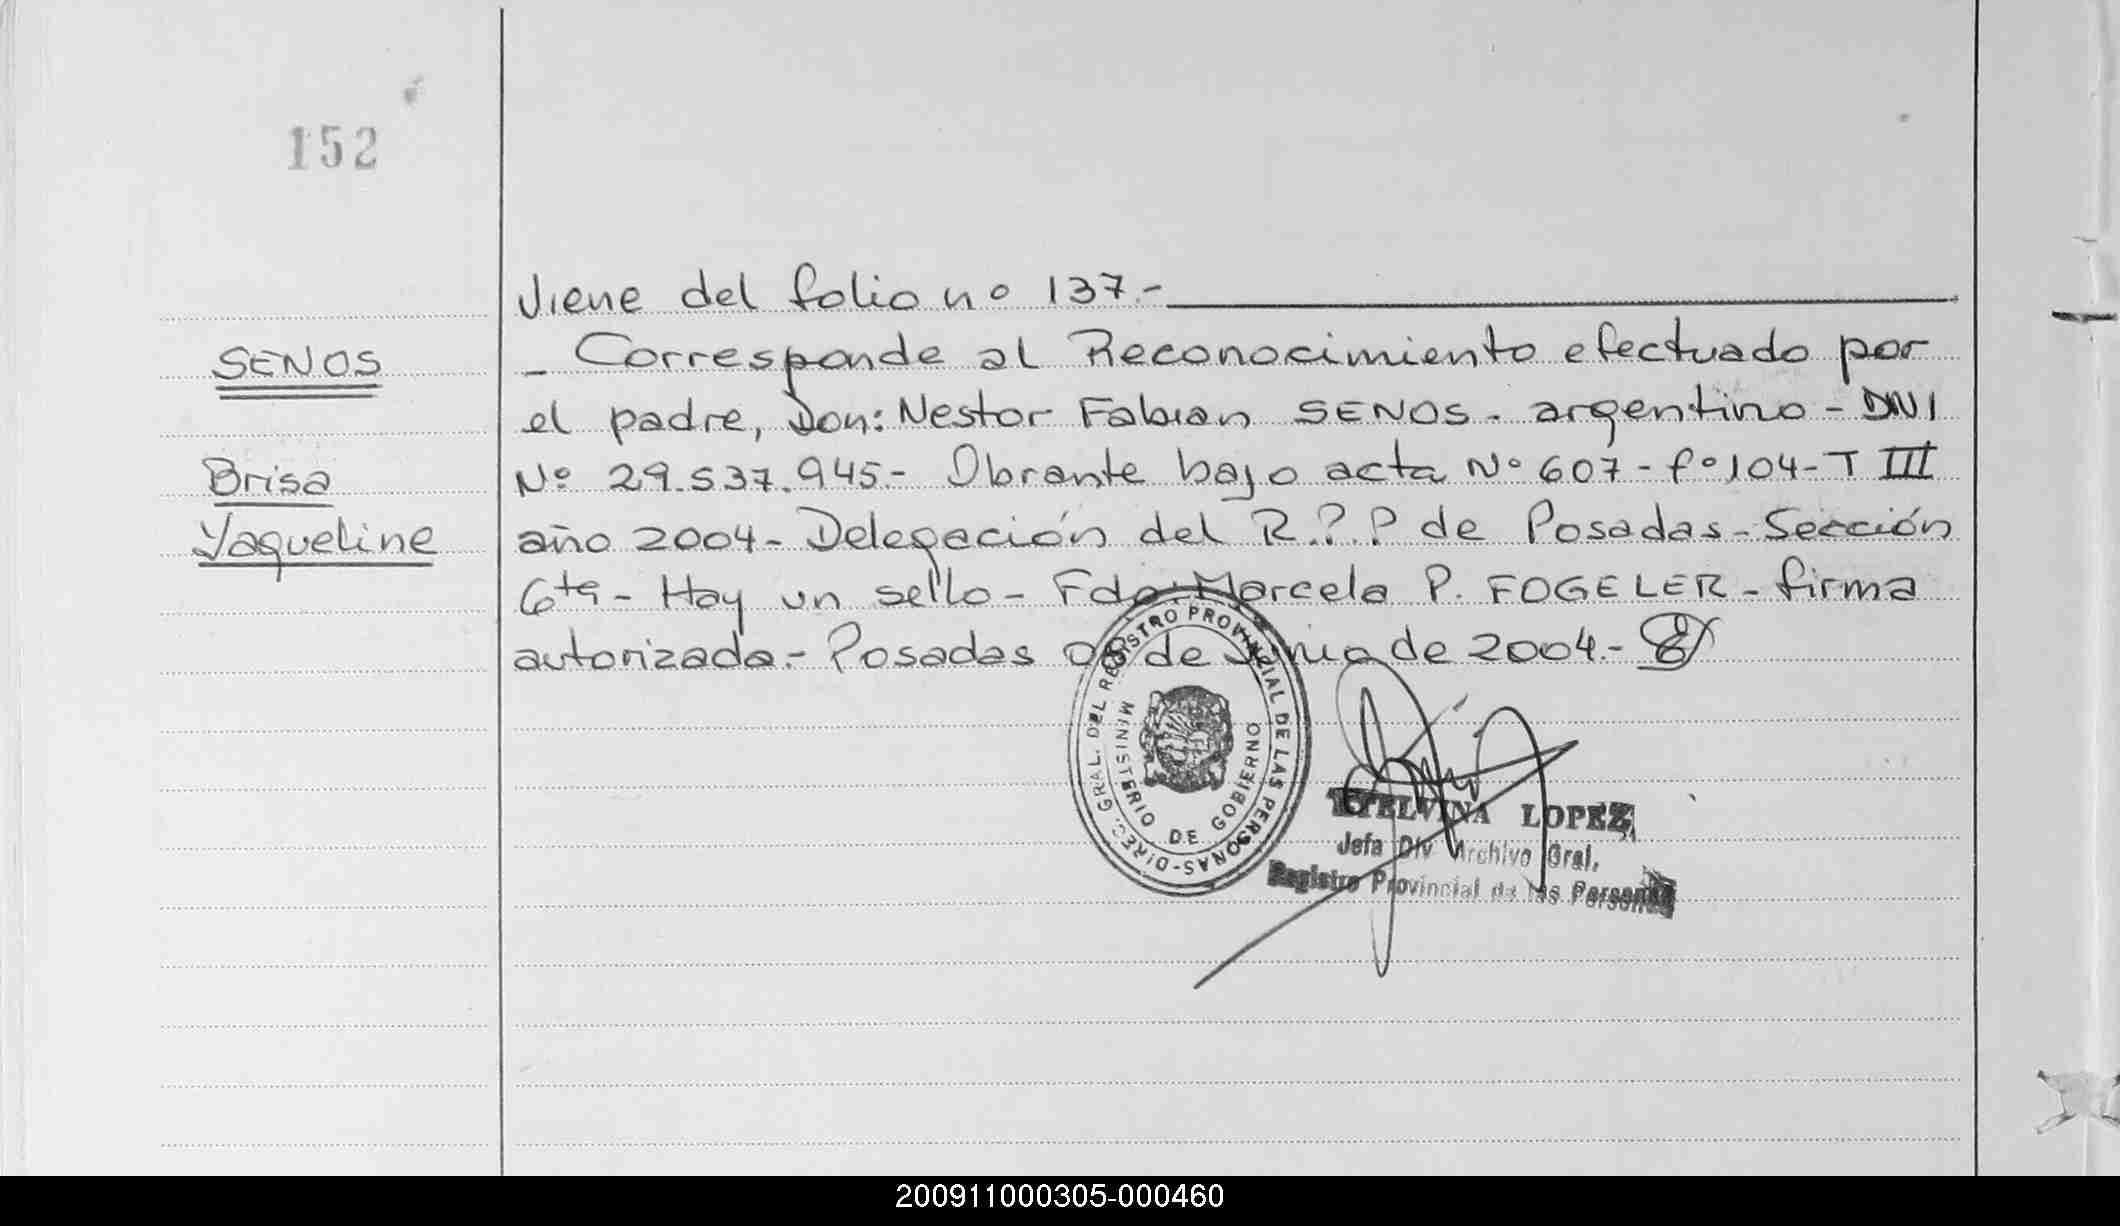 152
Viene del folio nº 137.-
SENOS
- Corresponde al Reconocimiento efectuado por
el padre, Don: Nestor Fabian SENOS - argentino - DNI
Brisa
Nº 29.537.945.- Obrante bajo acta Nº 607 - fº 104 - T III
Yaqueline
año 2004 - Delegación del R.P.P de Posadas - Sección
6ta - Hay un sello - Fdo. Marcela P. FOGELER - firma
autorizada.- Posadas 08 de de 2004.-
DIREC. GRAL. DEL REGISTRO PROVINCIAL DE LAS PERSONAS
MINISTERIO DE GOBIERNO
ETELVINA LOPEZ
Jefa Div Archivo Gral.
Registro Provincial de las Personas
200911000305-000460